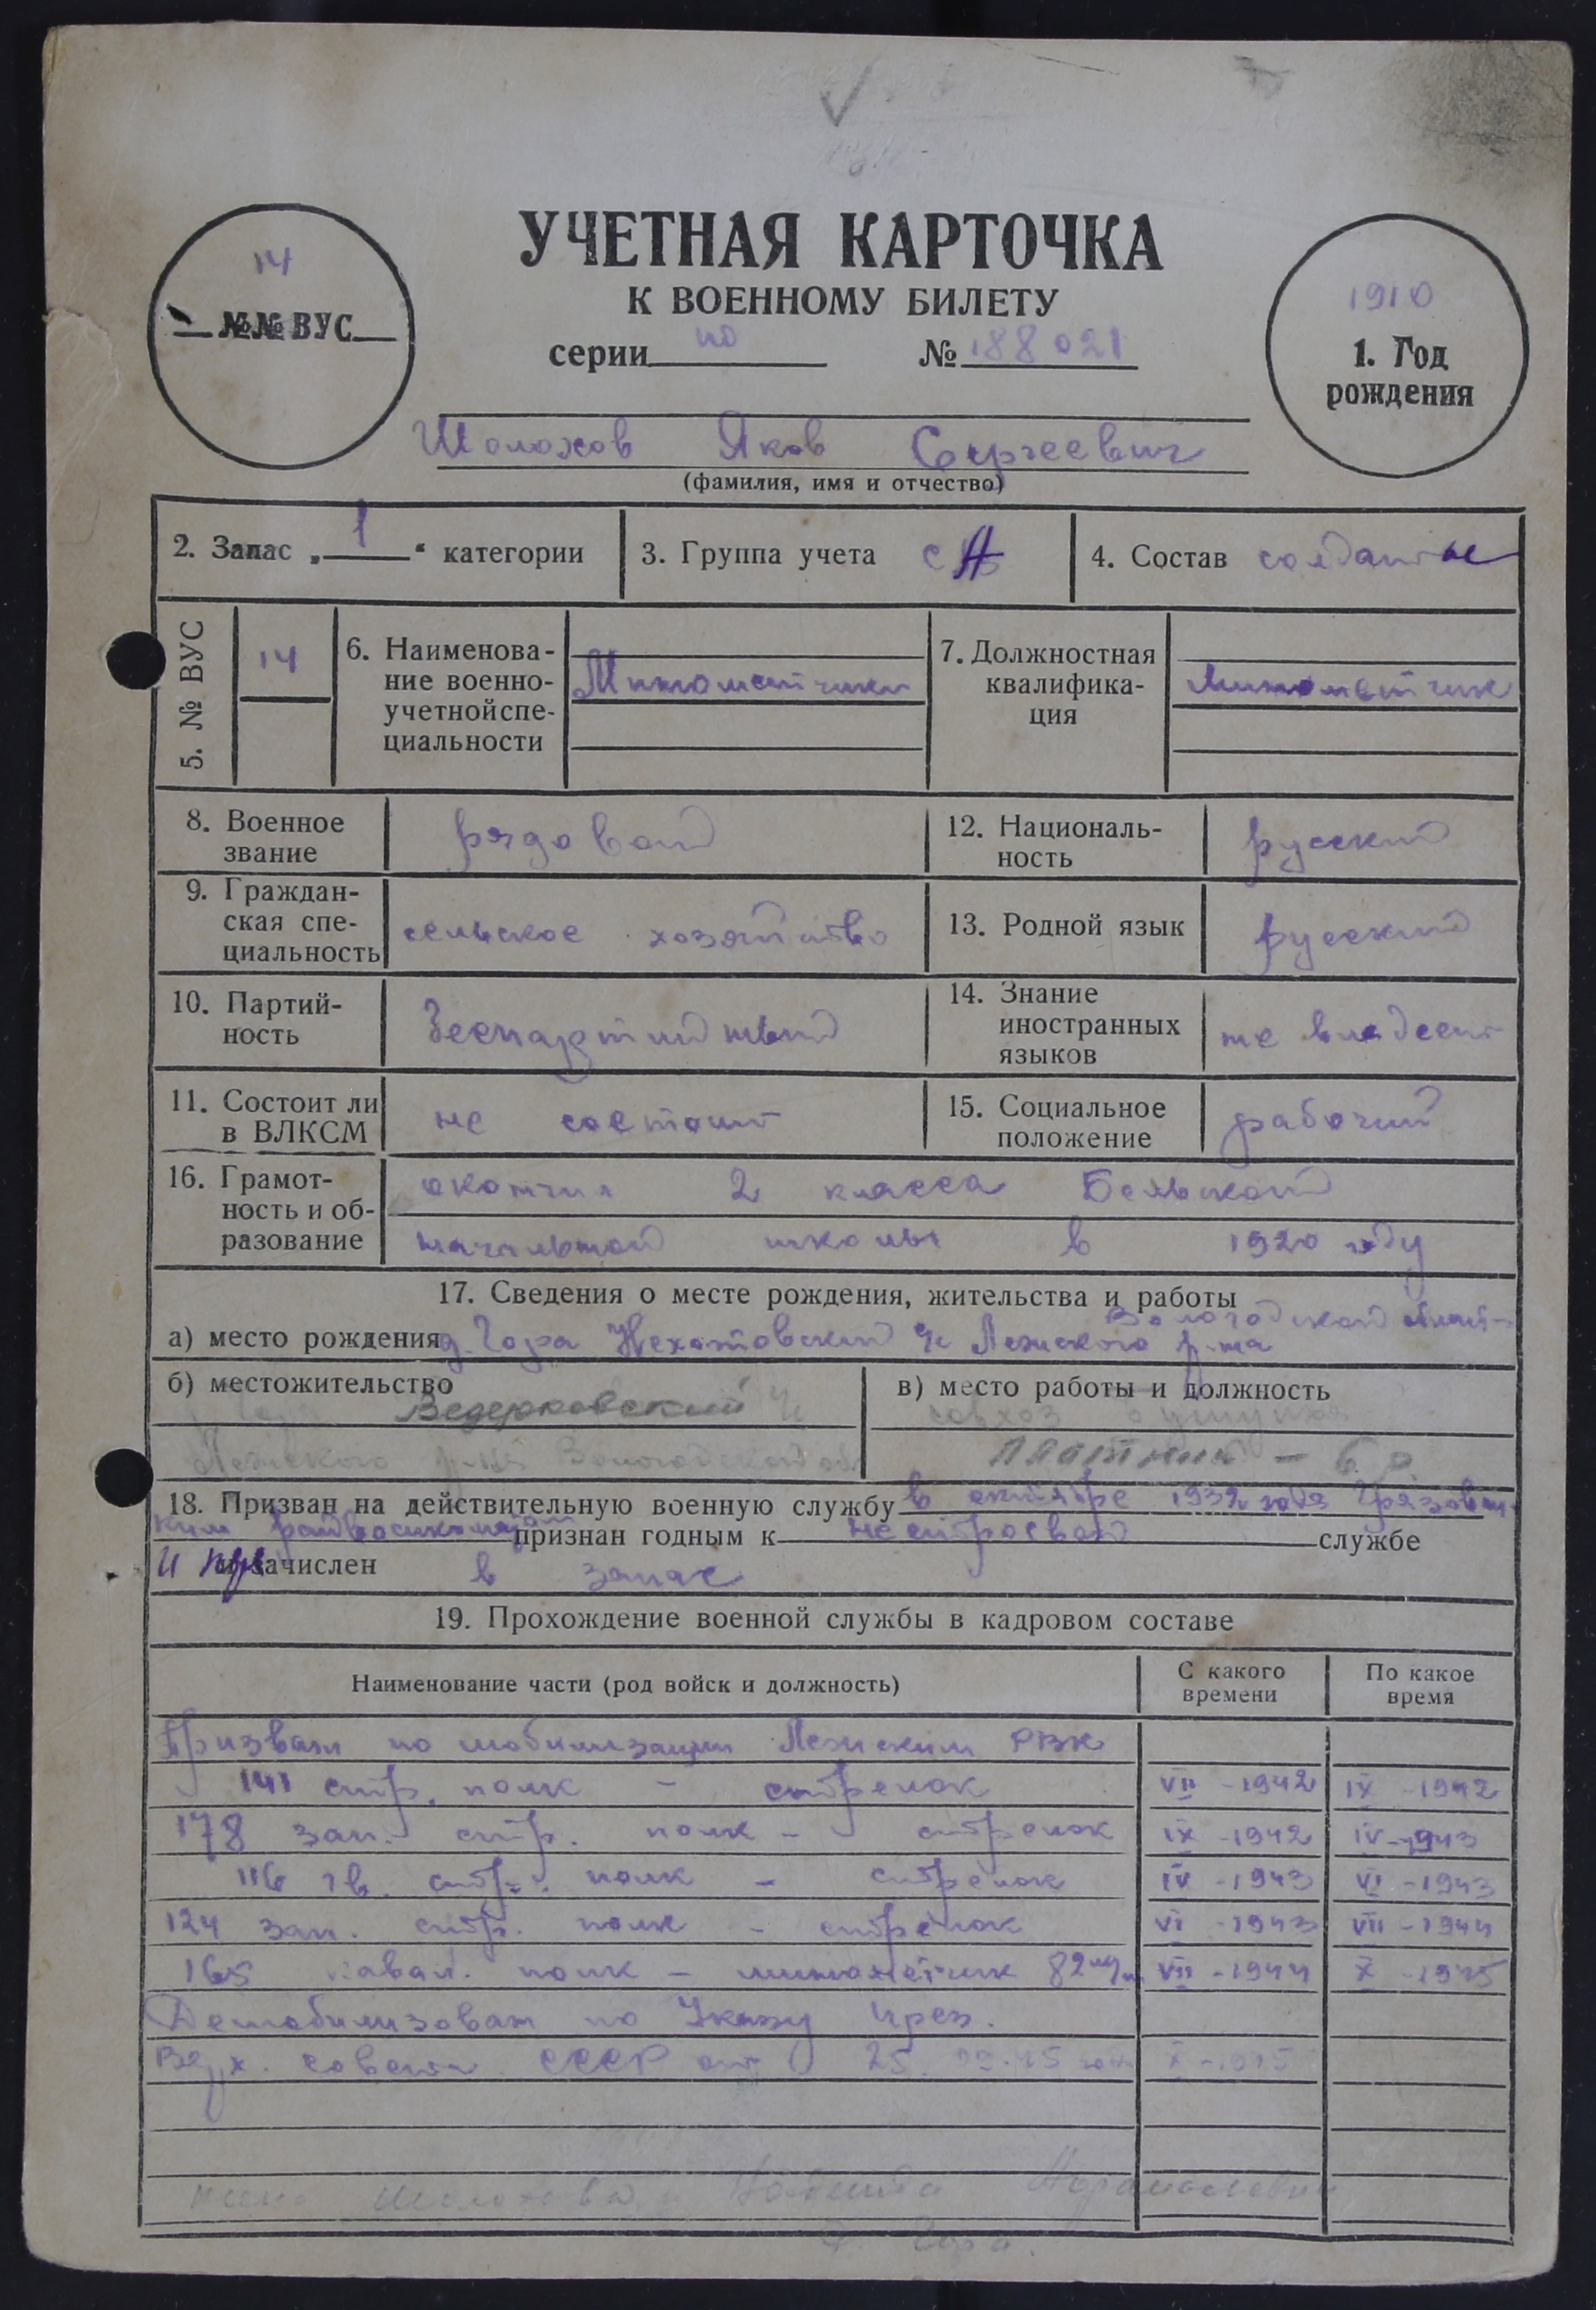 УЧЕТНАЯ КАРТОЧКА
К ВОЕННОМУ БИЛЕТУ
серии но № 188021
14
№№ ВУС
1910
1. Год
рождения
Шолохов Яков Сергеевич
(фамилия, имя и отчество)
2. Запас „ 1 “ категории
3. Группа учета СА
4. Состав солдаты
5. № ВУС
14
6. Наименова-
ние военно-
учетной спе-
циальности
Минометчики
7. Должностная
квалифика-
ция
Минометчик
8. Военное
звание
рядовой
12. Националь-
ность
русский
9. Граждан-
ская спе-
циальность
сельское хозяйство
13. Родной язык
русский
10. Партий-
ность
беспартийный
14. Знание
иностранных
языков
не владеет
11. Состоит ли
в ВЛКСМ
не состоит
15. Социальное
положение
рабочий
16. Грамот-
ность и об-
разование
окончил 2 класса Бельской
начальной школы в 1920 году
17. Сведения о месте рождения, жительства и работы
Вологодской област-
а) место рождения д. Гора Лежского р-на
б) местожительство
Ведерковский
Лежского р-на Вологодской об.
в) место работы и должность
совхоз
плотник
18. Призван на действительную военную службу в октябре 1932 года Грязовец-
ким райвоенкоматом признан годным к нестроевой службе
и зачислен в запас
19. Прохождение военной службы в кадровом составе
Наименование части (род войск и должность)
С какого
времени
По какое
время
Призван по мобилизации Лежским РВК
141 стр. полк - стрелок VII - 1942 IX - 1942
178 зап. стр. полк - стрелок IX - 1942 IV - 1943
116 гв. стр. полк - стрелок IV - 1943 VI - 1943
124 зап. стр. полк - стрелок VI - 1943 VII - 1944
165 кавал. полк - минометчик 82 м/м VII - 1944 X - 1945
Демобилизован по Указу През.
Верх. Совета СССР от 25.09.45 года X - 1945
жена Шолохова
д. Гора.